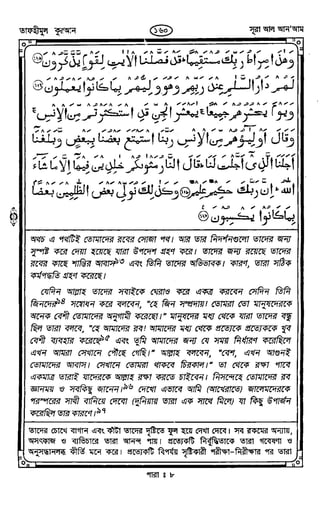 তাফহীমুল কুরআন ১৬০ সূরা আল আন'আম
وَهٰذَا صِرَاطُ رَبِّكَ مُسْتَقِيْمًا قَدْ فَصَّلْنَا الْاٰيٰتِ لِقَوْمٍ يَّذَّكَّرُوْنَ
لَهُمْ دَارُ السَّلٰمِ عِنْدَ رَبِّهِمْ وَهُوَ وَلِيُّهُمْ بِمَا كَانُوْا يَعْمَلُوْنَ
وَيَوْمَ يَحْشُرُهُمْ جَمِيْعًا يٰمَعْشَرَ الْجِنِّ قَدِ اسْتَكْثَرْتُمْ مِّنَ الْاِنْسِ
وَقَالَ اَوْلِيٰٓؤُهُمْ مِّنَ الْاِنْسِ رَبَّنَا اسْتَمْتَعَ بَعْضُنَا بِبَعْضٍ وَّبَلَغْنَا
اَجَلَنَا الَّذِيْٓ اَجَّلْتَ لَنَا قَالَ النَّارُ مَثْوٰىكُمْ خٰلِدِيْنَ فِيْهَآ اِلَّا مَا شَآءَ
اللّٰهُ اِنَّ رَبَّكَ حَكِيْمٌ عَلِيْمٌ وَكَذٰلِكَ نُوَلِّيْ بَعْضَ الظّٰلِمِيْنَ بَعْضًا
بِمَا كَانُوْا يَكْسِبُوْنَ
অথচ এ পথটিই তোমাদের রবের সোজা পথ। আর তার নিদর্শনগুলো তাদের জন্য
সুস্পষ্ট করে দেয়া হয়েছে যারা উপদেশ গ্রহণ করে। তাদের জন্য রয়েছে তাদের
রবের কাছে শান্তির আবাস এবং তিনি তাদের অভিভাবক। কারণ, তারা সঠিক
কর্মপদ্ধতি গ্রহণ করেছে।
যেদিন আল্লাহ তাদের সবাইকে ঘেরাও করে একত্র করবেন সেদিন তিনি
জিনদের সম্বোধন করে বলবেন, "হে জিন সম্প্রদায়! তোমরা তো মানুষদেরকে
অনেক বেশী তোমাদের অনুগামী করেছো।" মানুষদের মধ্য থেকে যারা তাদের বন্ধু
ছিল তারা বলবে, "হে আমাদের রব! আমাদের মধ্য থেকে প্রত্যেকে প্রত্যেককে খুব
বেশী ব্যবহার করেছে এবং তুমি আমাদের জন্য যে সময় নির্ধারণ করেছিলে
এখন আমরা সেখানে পৌঁছে গেছি।" আল্লাহ বলবেন, "বেশ, এখন আগুনই
তোমাদের আবাস। সেখানে তোমরা থাকবে চিরকাল।" তা থেকে রক্ষা পাবে
একমাত্র তারাই যাদেরকে আল্লাহ রক্ষা করতে চাইবেন। নিসন্দেহে তোমাদের রব
জ্ঞানময় ও সবকিছু জানেন। দেখো এভাবে আমি (আখেরাতে) জালেমদেরকে
পরস্পরের সাথী বানিয়ে দেবো (দুনিয়ায় তারা এক সাথে মিলে) যা কিছু উপার্জন
করেছিল তার কারণে।
তাদের চোখে বাগান এবং কাঁটা তাদের দৃষ্টিতে ফুল হয়ে দেখা দেবে। সব রকমের অন্যায়,
অসৎকাজ ও ব্যভিচারে তারা আনন্দ পায়। প্রত্যেকটি নির্বুদ্ধিতাকে তারা গবেষণা ও
অনুসন্ধানলব্ধ কীর্তি মনে করে। প্রত্যেকটি বিপর্যয় সৃষ্টিকারী পরীক্ষা-নিরীক্ষার পর তারা
পারা : ৮